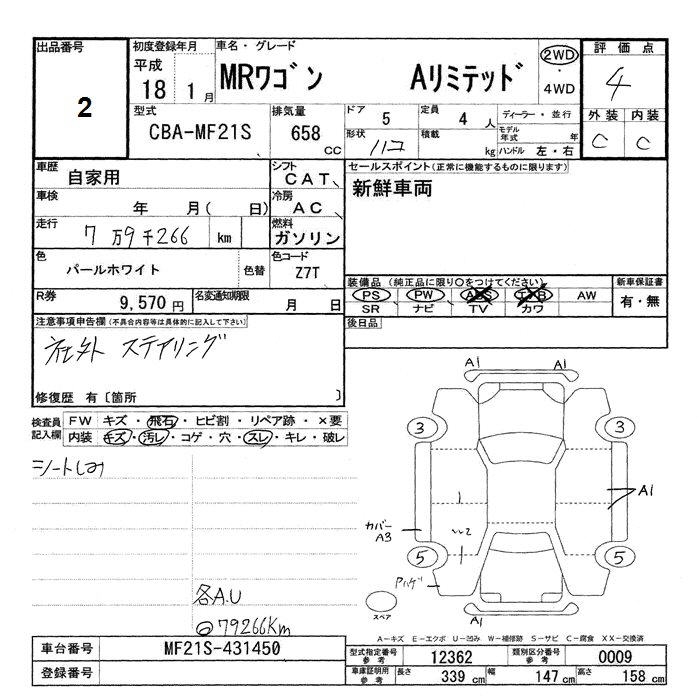 出品番号
2
初度登録年月
平成
18 1 月
車名・グレード
MRワゴン Aリミテッド
2WD
・
4WD
評価点
4
外装 内装
C C
型式
CBA-MF21S
排気量
658 CC
ドア 5
定員 4 人
形状 ハコ
積載 kg
ディーラー・並行
モデル年式 年
ハンドル 左・右
車歴
自家用
シフト
CAT
車検
年 月( 日)
冷房
AC
走行
7万9千266 km
燃料
ガソリン
色
パールホワイト 色替
色コード
Z7T
R券
9,570 円
名変通知期限
月 日
セールスポイント(正常に機能するものに限ります)
新鮮車両
装備品(純正品に限り○をつけてください)
PS PW ABS エアB AW
SR ナビ TV カワ
新車保証書
有・無
後日品
注意事項申告欄(不具合内容等は具体的に記入して下さい)
社外 ステアリング
修復歴 有〔箇所 〕
検査員記入欄
FW キズ・飛石・ヒビ割・リペア跡・×要
内装 キズ・汚レ・コゲ・穴・スレ・キレ・破レ
シートしみ
各A.U
79266Km
A1 A1
3 3
A1
カバー
A3
5 5
Pハゲ
A1
スペア
A−キズ E−エクボ U−凹み W−補修跡 S−サビ C−腐食 XX−交換済
車台番号 MF21S-431450
登録番号
型式指定番号 参考 12362
類別区分番号 参考 0009
車庫証明用 参考 長さ 339 cm 幅 147 cm 高さ 158 cm